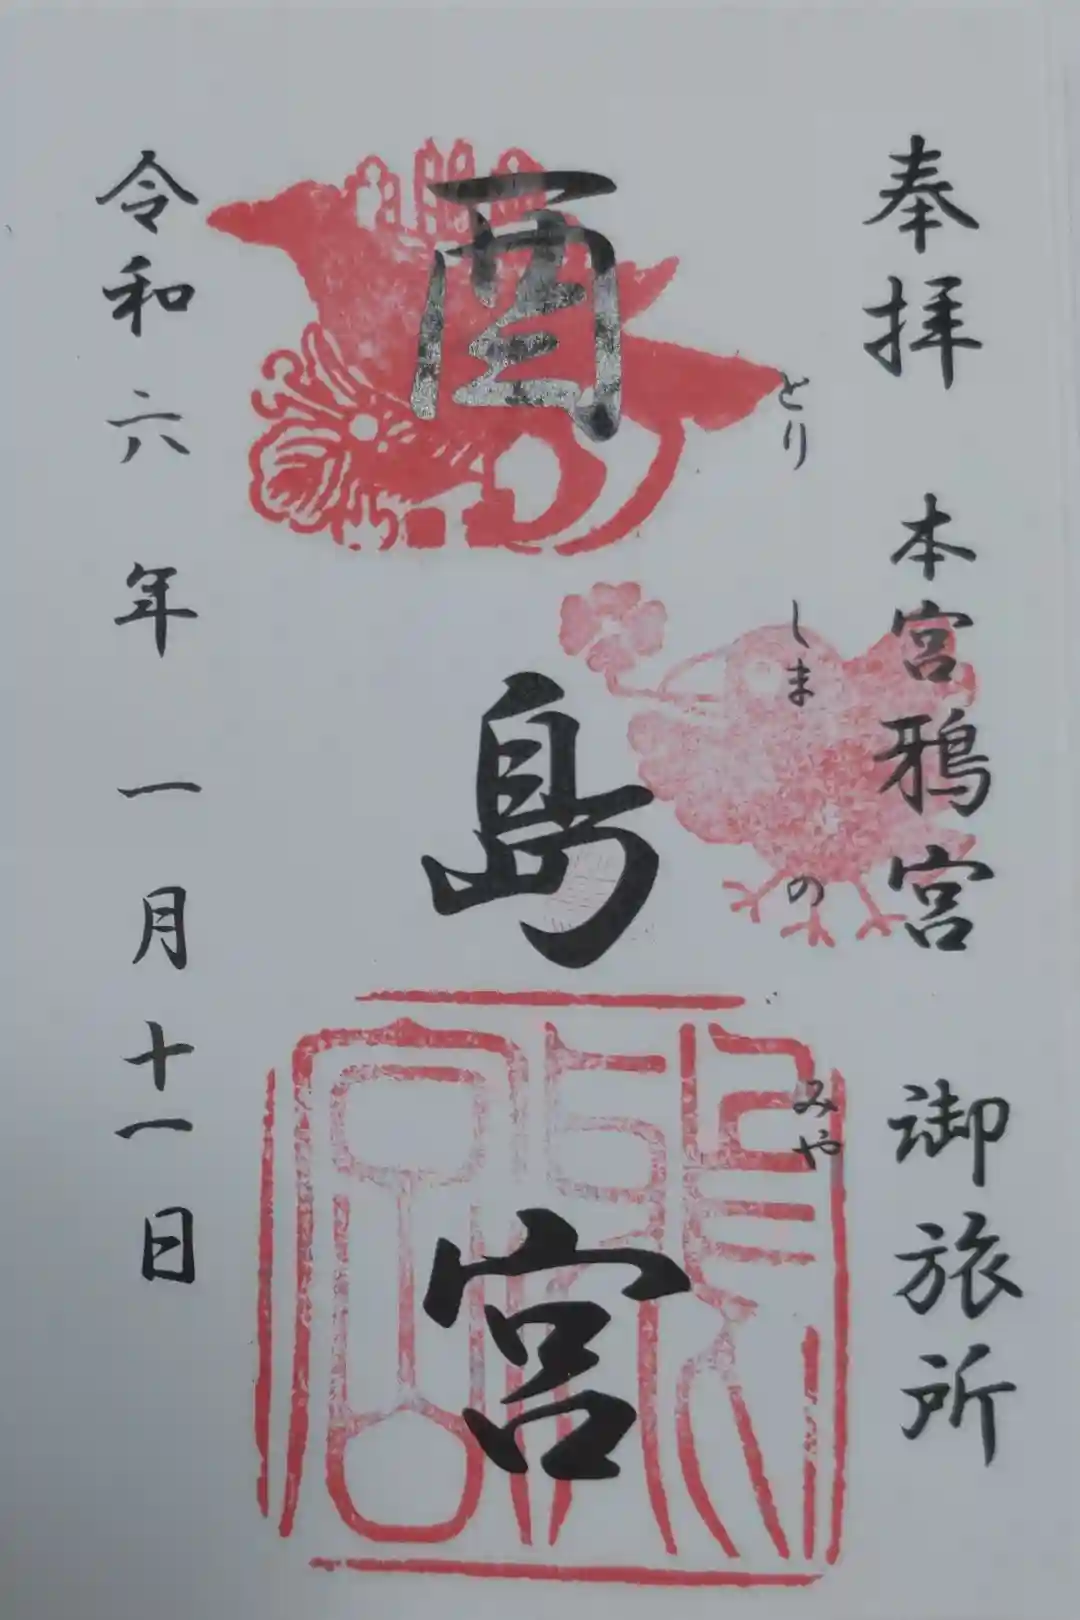 奉拝 本宮鴉宮 御旅所
とり しま の みや
酉島宮
令和六年 一月十一日